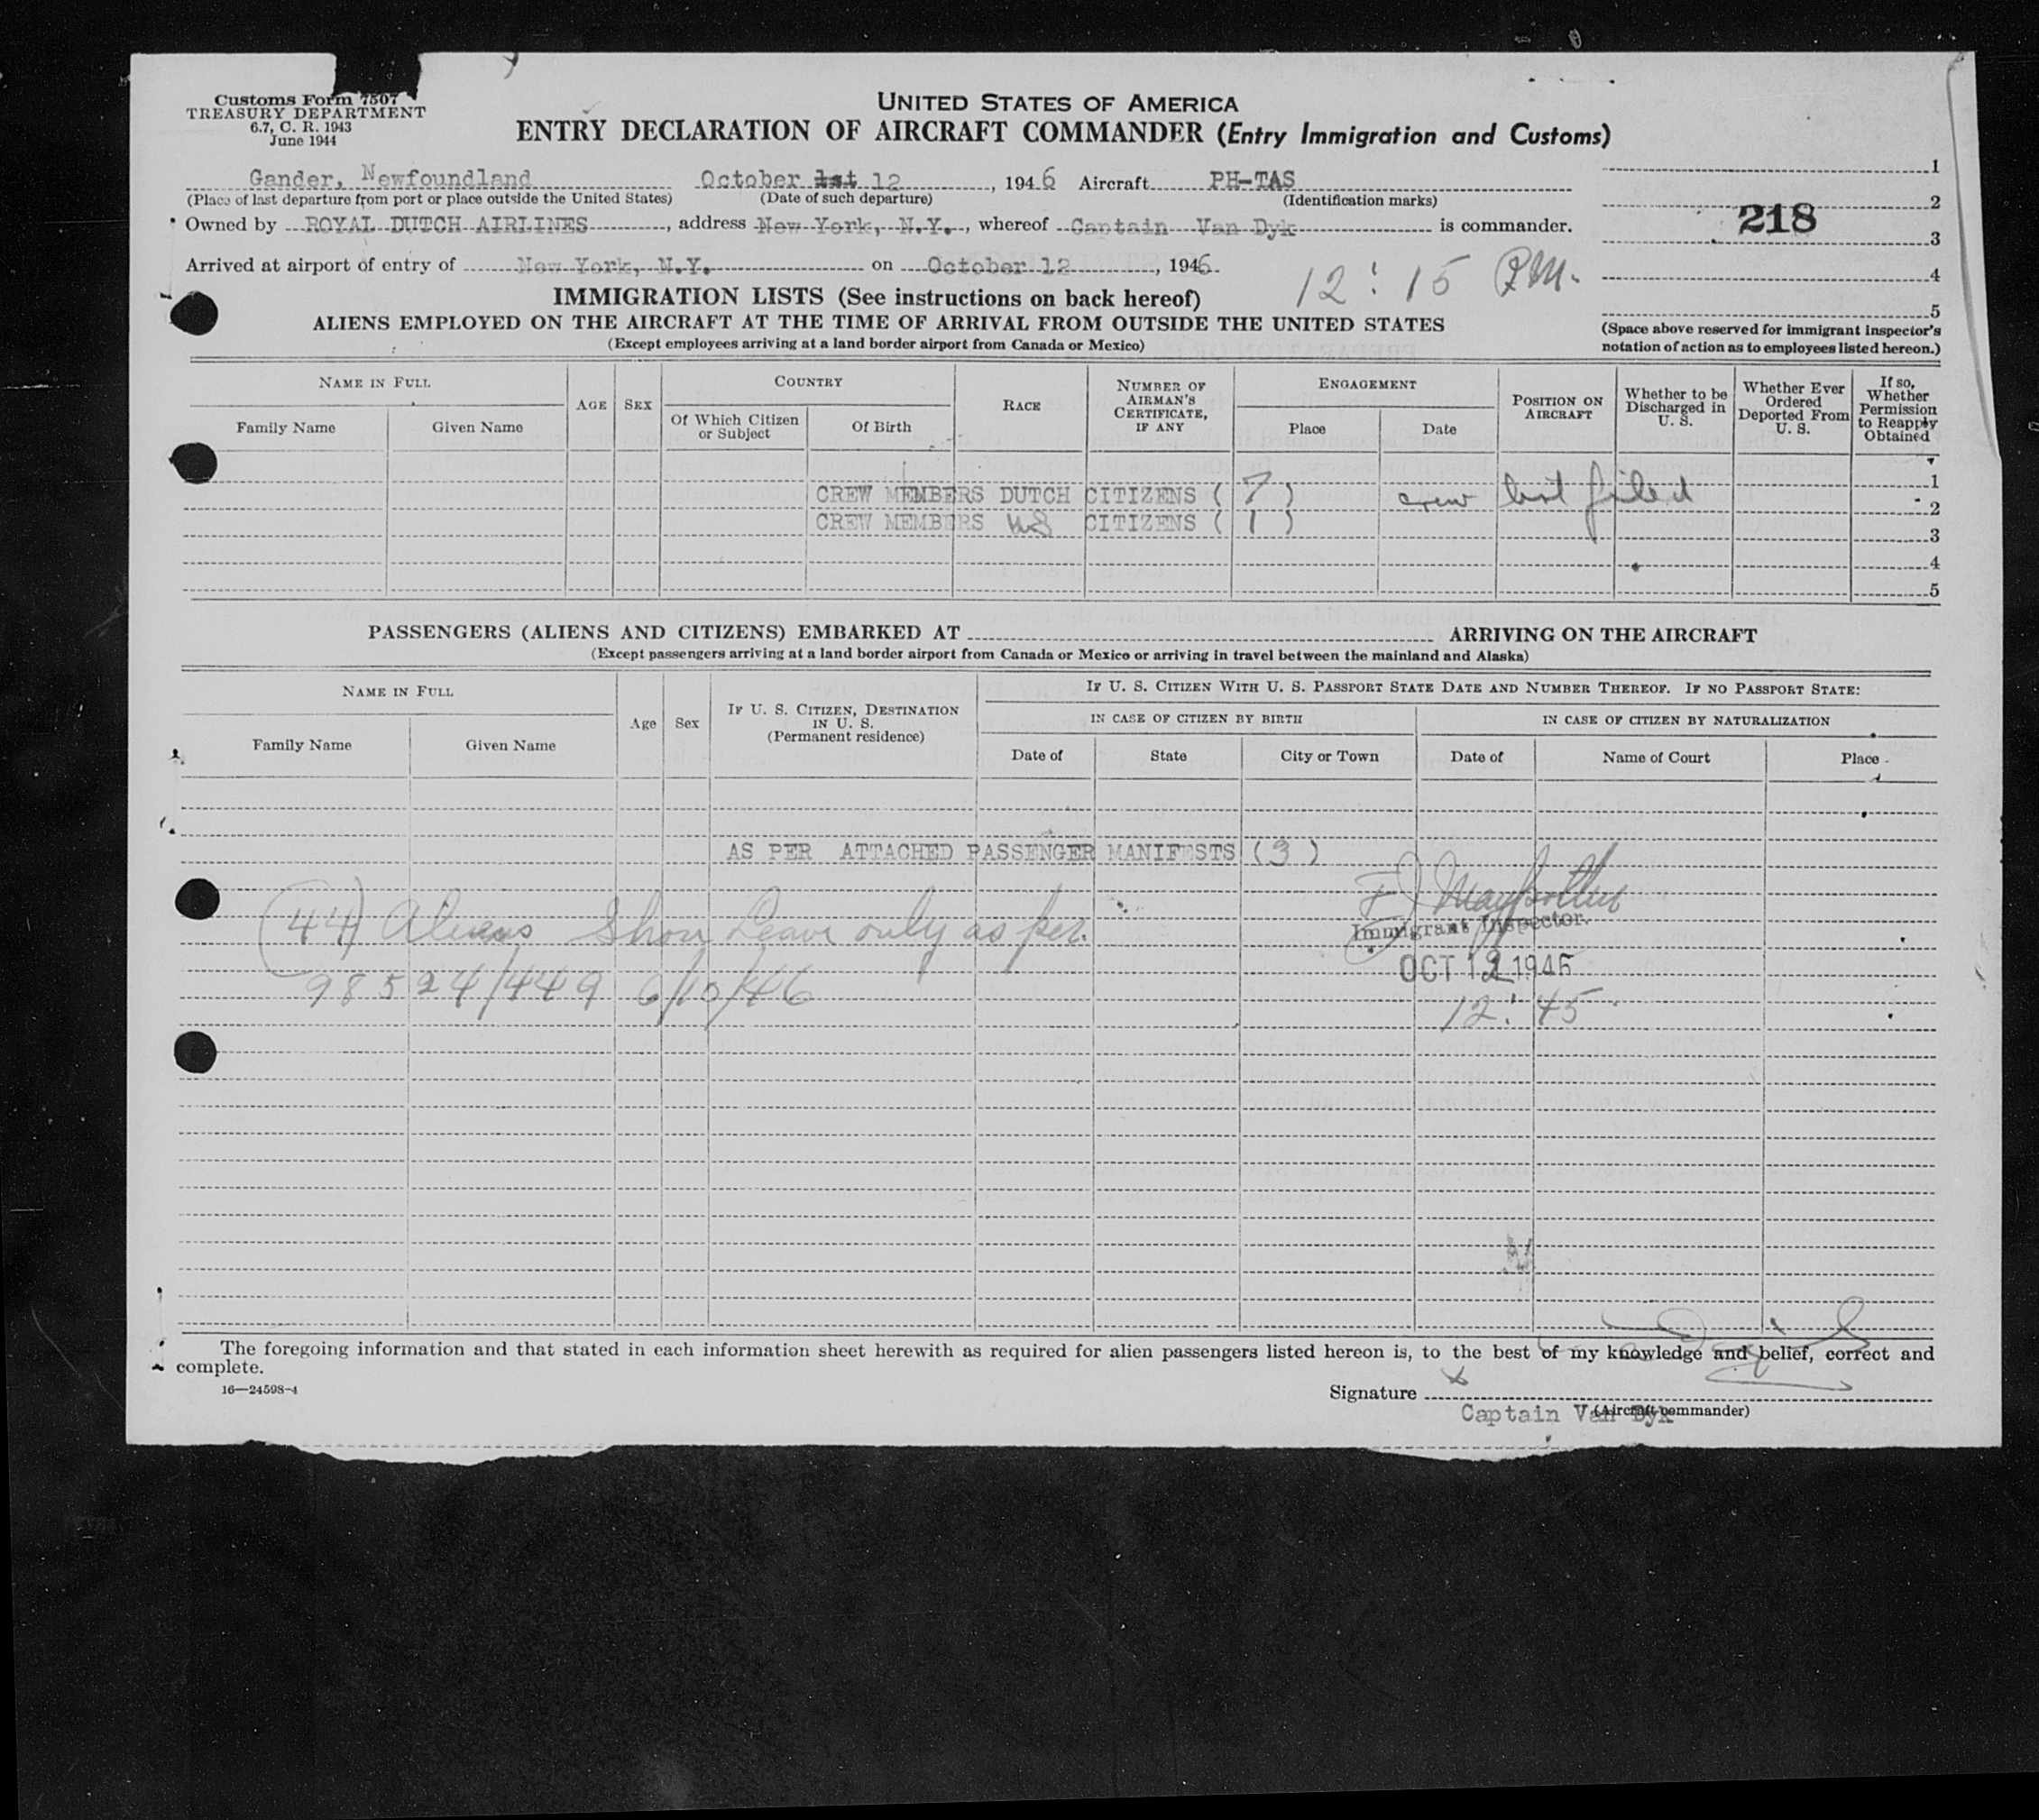 Customs Form 7507
TREASURY DEPARTMENT
6.7, C. R. 1943
June 1944
UNITED STATES OF AMERICA
ENTRY DECLARATION OF AIRCRAFT COMMANDER (Entry Immigration and Customs)
Gander, Newfoundland October 1st 12, 1946 Aircraft PH-TAS
(Place of last departure from port or place outside the United States) (Date of such departure) (Identification marks)
Owned by ROYAL DUTCH AIRLINES, address New York, N.Y., whereof Captain Van Dyk is commander.
Arrived at airport of entry of New York, N.Y. on October 12, 1946
12:15 P.M.
1
2
218
3
4
5
(Space above reserved for immigrant inspector's notation of action as to employees listed hereon.)
IMMIGRATION LISTS (See instructions on back hereof)
ALIENS EMPLOYED ON THE AIRCRAFT AT THE TIME OF ARRIVAL FROM OUTSIDE THE UNITED STATES
(Except employees arriving at a land border airport from Canada or Mexico)
NAME IN FULL
Family Name
Given Name
AGE
SEX
COUNTRY
Of Which Citizen or Subject
Of Birth
RACE
NUMBER OF AIRMAN'S CERTIFICATE, IF ANY
ENGAGEMENT
Place
Date
POSITION ON AIRCRAFT
Whether to be Discharged in U. S.
Whether Ever Ordered Deported From U. S.
If so, Whether Permission to Reapply Obtained
1
CREW MEMBERS DUTCH CITIZENS (7) crew list filed
2
CREW MEMBERS US CITIZENS (1)
3
4
5
PASSENGERS (ALIENS AND CITIZENS) EMBARKED AT ARRIVING ON THE AIRCRAFT
(Except passengers arriving at a land border airport from Canada or Mexico or arriving in travel between the mainland and Alaska)
NAME IN FULL
Family Name
Given Name
Age
Sex
IF U. S. CITIZEN, DESTINATION IN U. S.
(Permanent residence)
IF U. S. CITIZEN WITH U. S. PASSPORT STATE DATE AND NUMBER THEREOF. IF NO PASSPORT STATE:
IN CASE OF CITIZEN BY BIRTH
IN CASE OF CITIZEN BY NATURALIZATION
Date of
State
City or Town
Date of
Name of Court
Place
AS PER ATTACHED PASSENGER MANIFESTS (3)
(44) Aliens Shore Leave only as per.
Immigrant Inspector.
98524/449 6/10/46
OCT 12 1946
12:45
The foregoing information and that stated in each information sheet herewith as required for alien passengers listed hereon is, to the best of my knowledge and belief, correct and
complete.
16—24598-4
Signature x
(Aircraft commander)
Captain Van Dyk